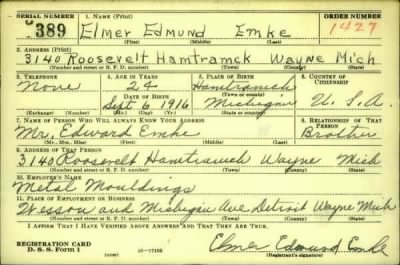 SERIAL NUMBER 1. NAME (Print) ORDER NUMBER
389 Elmer Edmund Emke 1427
(First) (Middle) (Last)
2. ADDRESS (Print)
3140 Roosevelt Hamtramck Wayne Mich
(Number and street or R. F. D. number) (Town) (County) (State)
3. TELEPHONE 4. AGE IN YEARS 5. PLACE OF BIRTH 6. COUNTRY OF CITIZENSHIP
None 24 Hamtramck
DATE OF BIRTH (Town or county)
Sept 6 1916 Michigan U.S.A.
(Exchange) (Number) (Mo.) (Day) (Yr.) (State or country)
7. NAME OF PERSON WHO WILL ALWAYS KNOW YOUR ADDRESS 8. RELATIONSHIP OF THAT PERSON
Mr. Edward Emke Brother
(Mr., Mrs., Miss) (First) (Middle) (Last)
9. ADDRESS OF THAT PERSON
3140 Roosevelt Hamtramck Wayne Mich
(Number and street or R. F. D. number) (Town) (County) (State)
10. EMPLOYER'S NAME
Metal Mouldings
11. PLACE OF EMPLOYMENT OR BUSINESS
Wesson and Michigan Ave Detroit Wayne Mich
(Number and street or R. F. D. number) (Town) (County) (State)
I AFFIRM THAT I HAVE VERIFIED ABOVE ANSWERS AND THAT THEY ARE TRUE.
REGISTRATION CARD
D. S. S. Form 1 (over) Elmer Edmund Emke
(Registrant's signature)